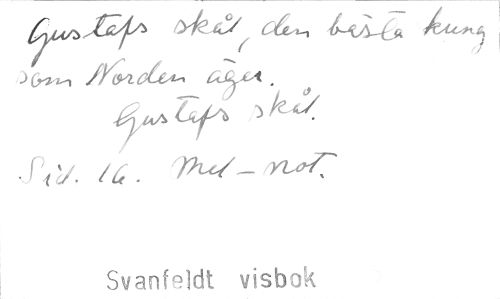 Gustafs skål, den bästa kung
som Norden äger.
Gustafs skål.
Sid. 1a. Mel-not.
Svanfeldt visbok